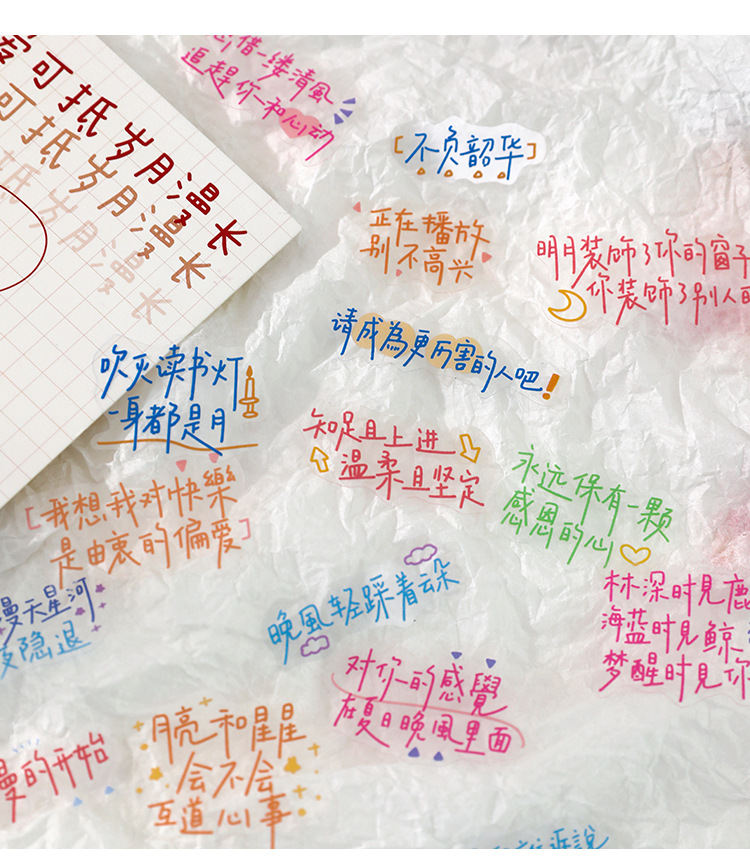 可抵岁月漫长
可抵岁月漫长
抵岁月漫长
借一缕清風
追趕你一和心动
[不负韶华]
正在播放
别不高兴
明月装饰了你的窗子
你装饰了别人的
请成為更厉害的人吧!
吹灭读书灯
一身都是月
知足且上进
温柔且坚定
永远保有一颗
感恩的心
[我想我对快樂
是由衷的偏爱]
漫天星河
隐退
晚風轻踩着云朵
林深时見鹿
海蓝时見鲸
梦醒时見你
对你的感覺
在夏日晚風里面
漫的开始
月亮和星星
会不会
互道心事
訴說